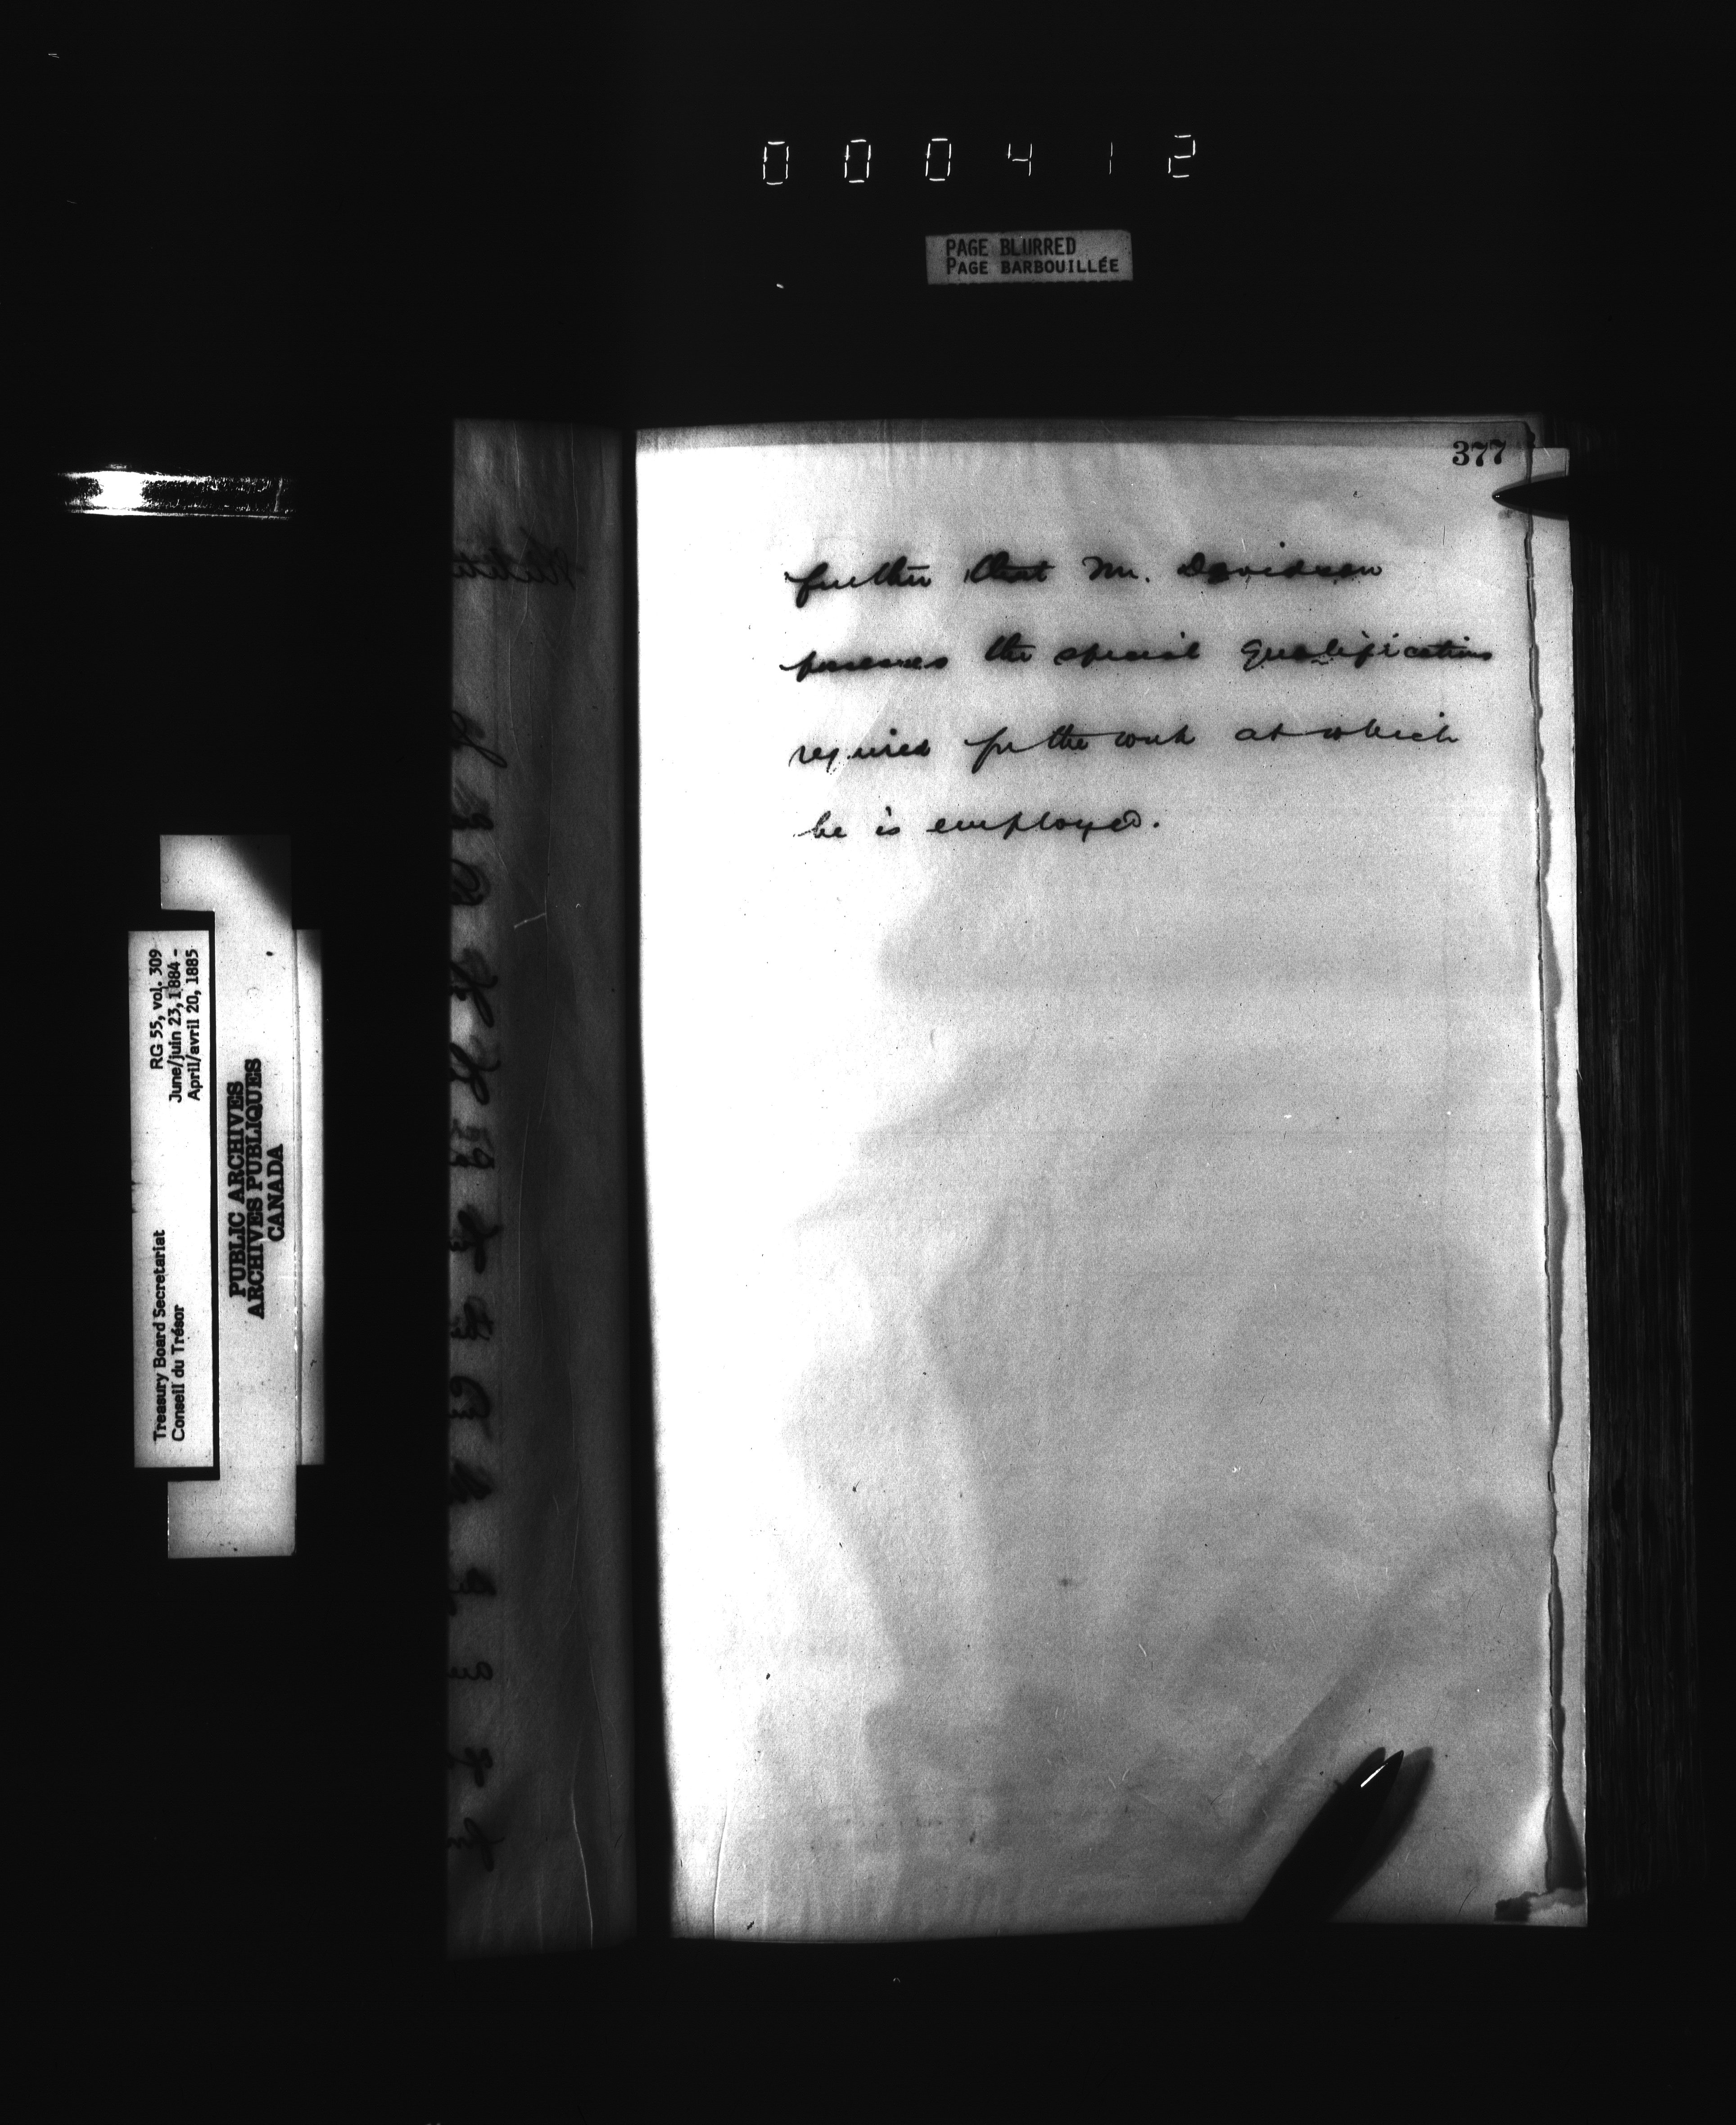 000412
PAGE BLURRED
PAGE BARBOUILLÉE
377
further that Mr. Davidson
possesses the special qualifications
required for the work at which
he is employed.
RG 55, vol. 309
June/juin 23, 1884 -
April/avril 20, 1885
Treasury Board Secretariat
Conseil du Trésor
PUBLIC ARCHIVES
ARCHIVES PUBLIQUES
CANADA